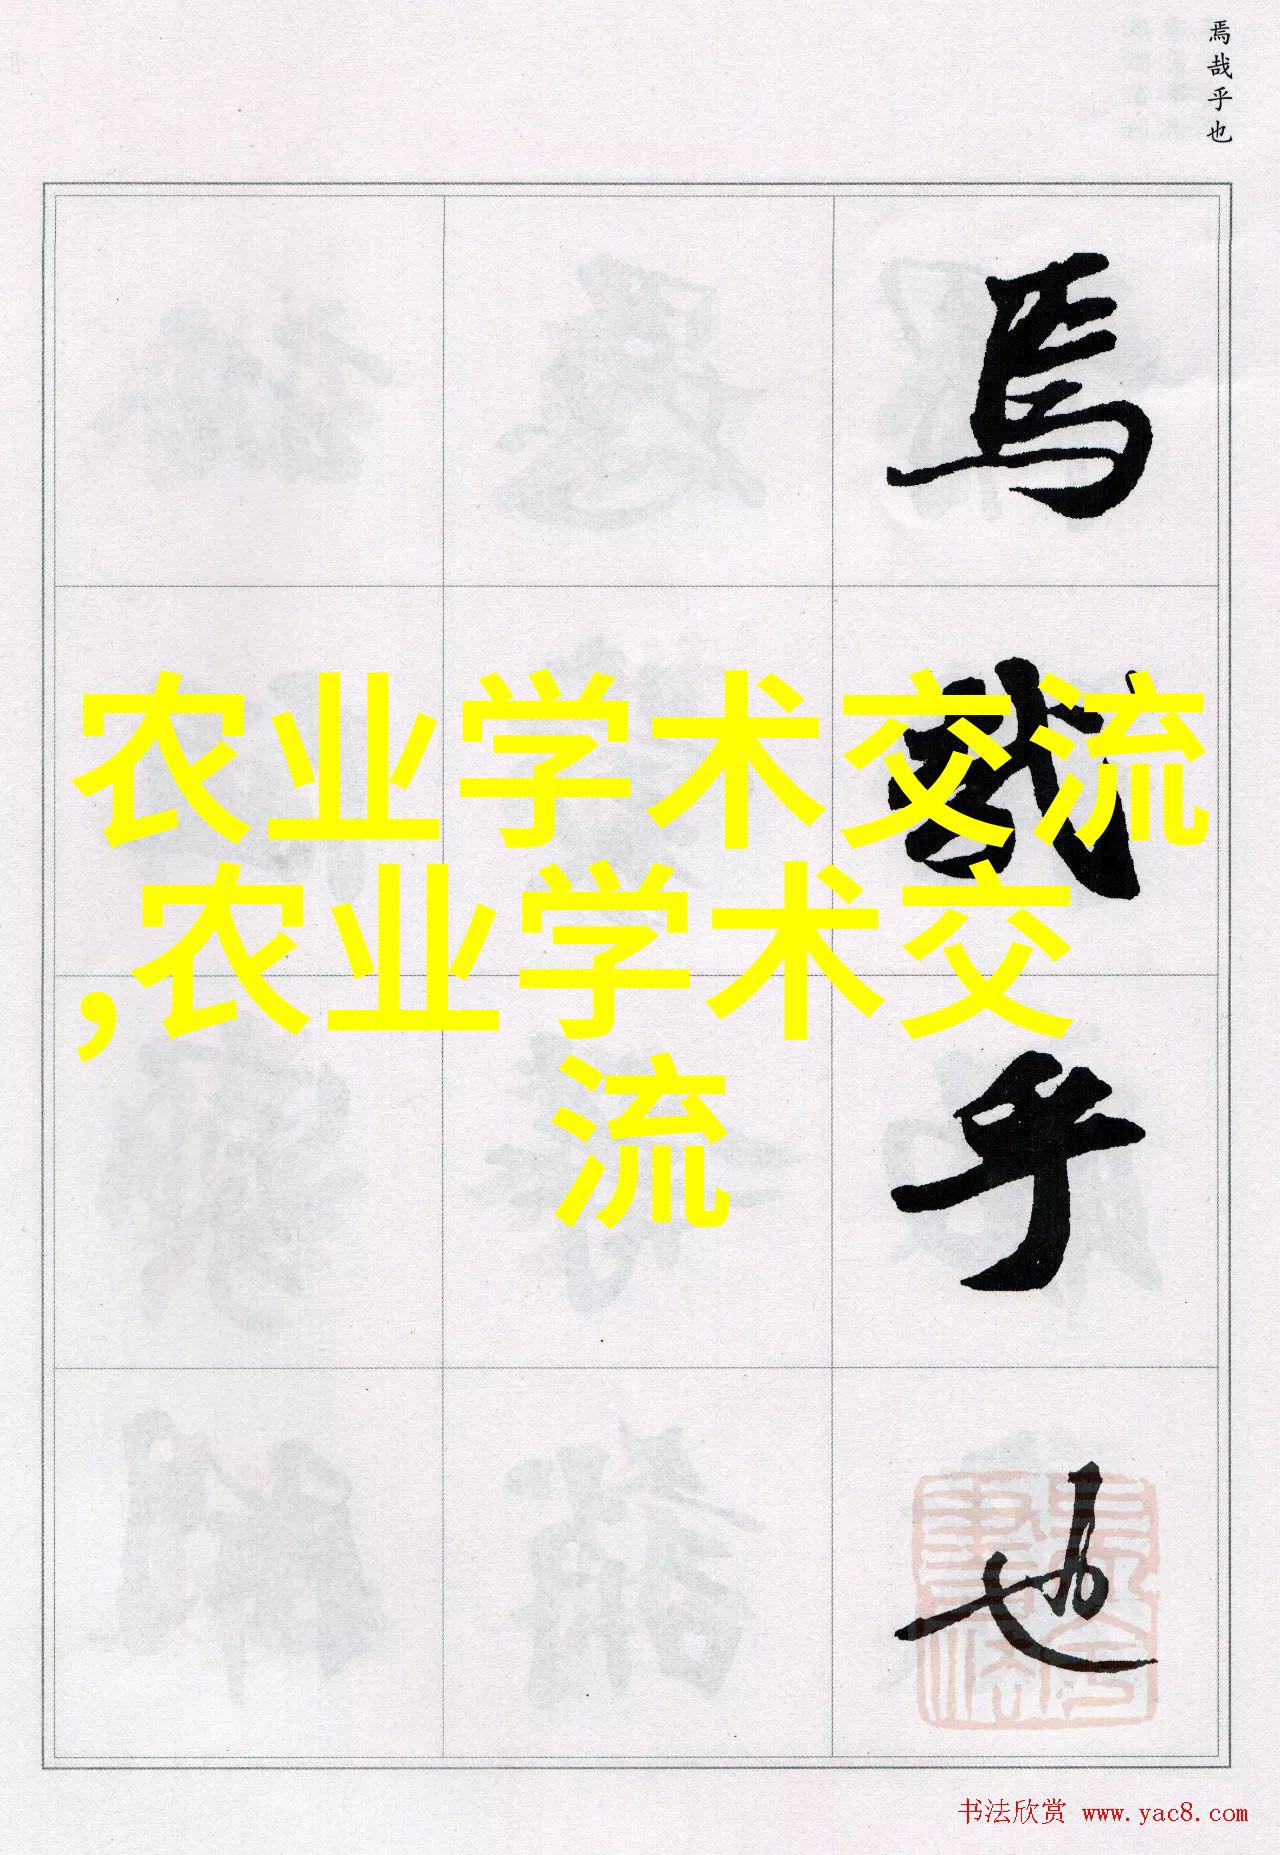 焉哉乎也
焉
哉
乎
也
农业学术交流
,农业学术交
流
书法欣赏 www.yac8.com